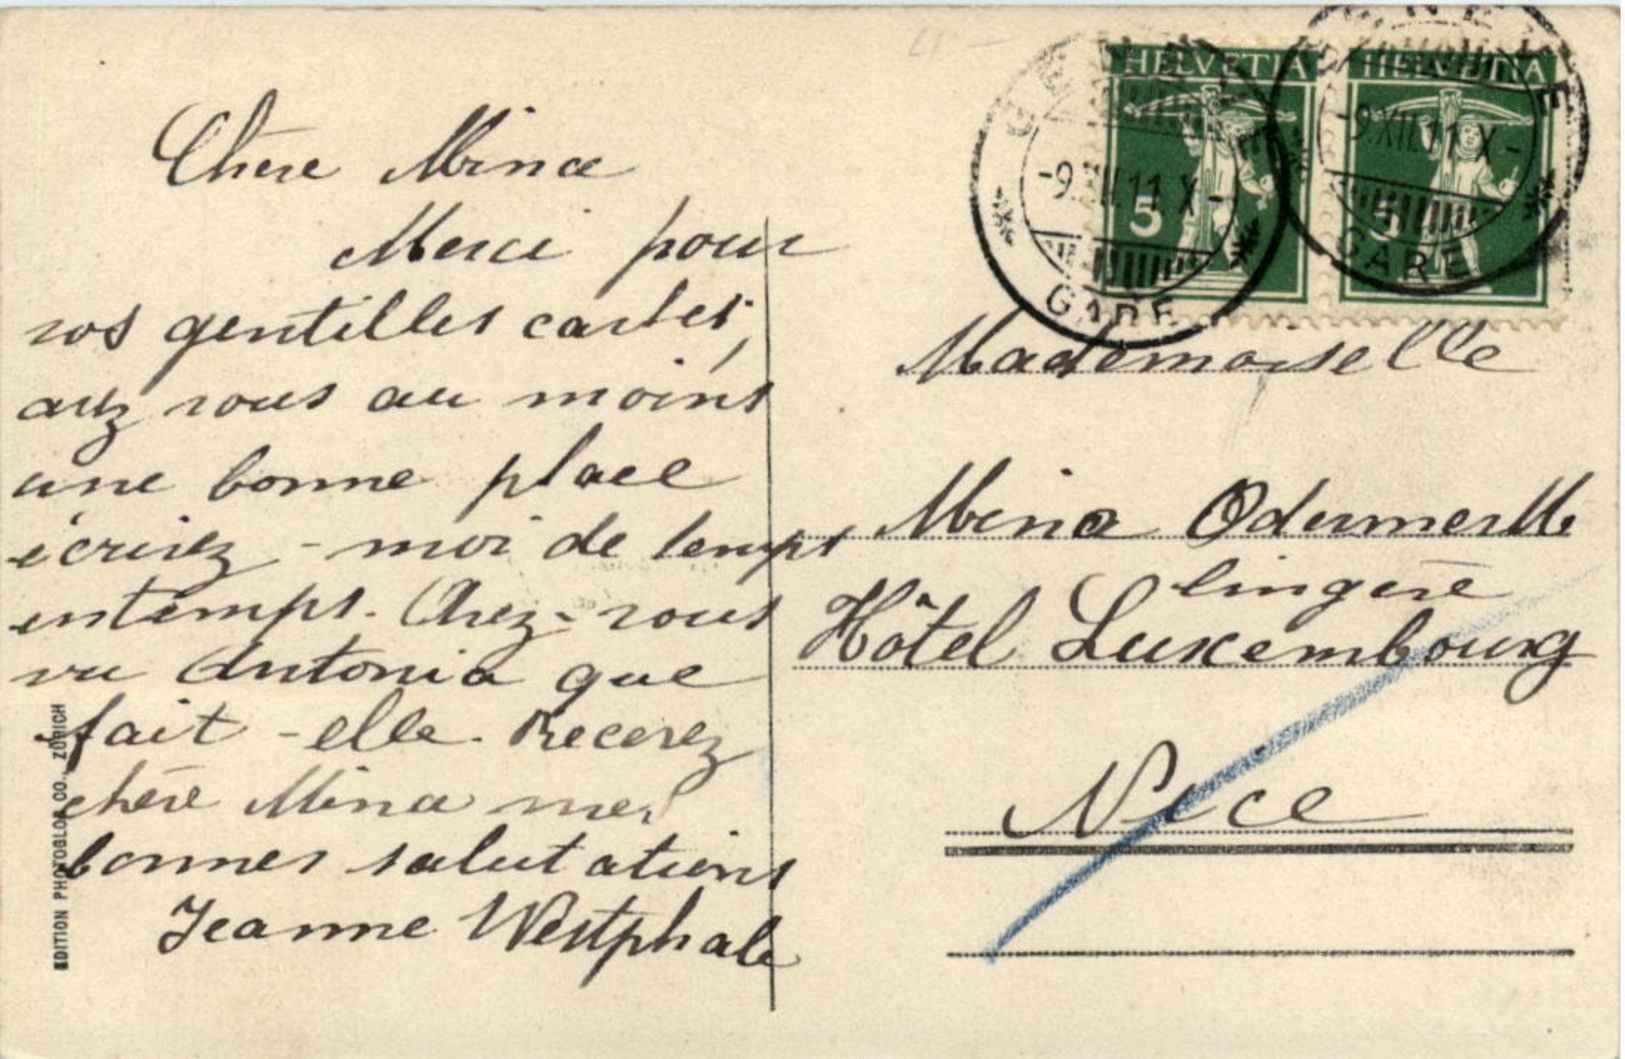 Chère Mina
Merci pour
vos gentilles cartes,
avez vous au moins
une bonne place
écrivez-moi de temps
en temps. Avez-vous
vu Antonia que
fait-elle. Recevez
chère Mina mes
bonnes salutations
Jeanne Westphale
EDITION PHOTOGLOB CO. ZÜRICH
HELVETIA
5
HELVETIA
5
GENÈVE
-9.XII.11 X-
GARE
GENÈVE
-9.XII.11 X-
GARE
Mademoiselle
Mina Odermatt
lingère
Hôtel Luxembourg
Nice